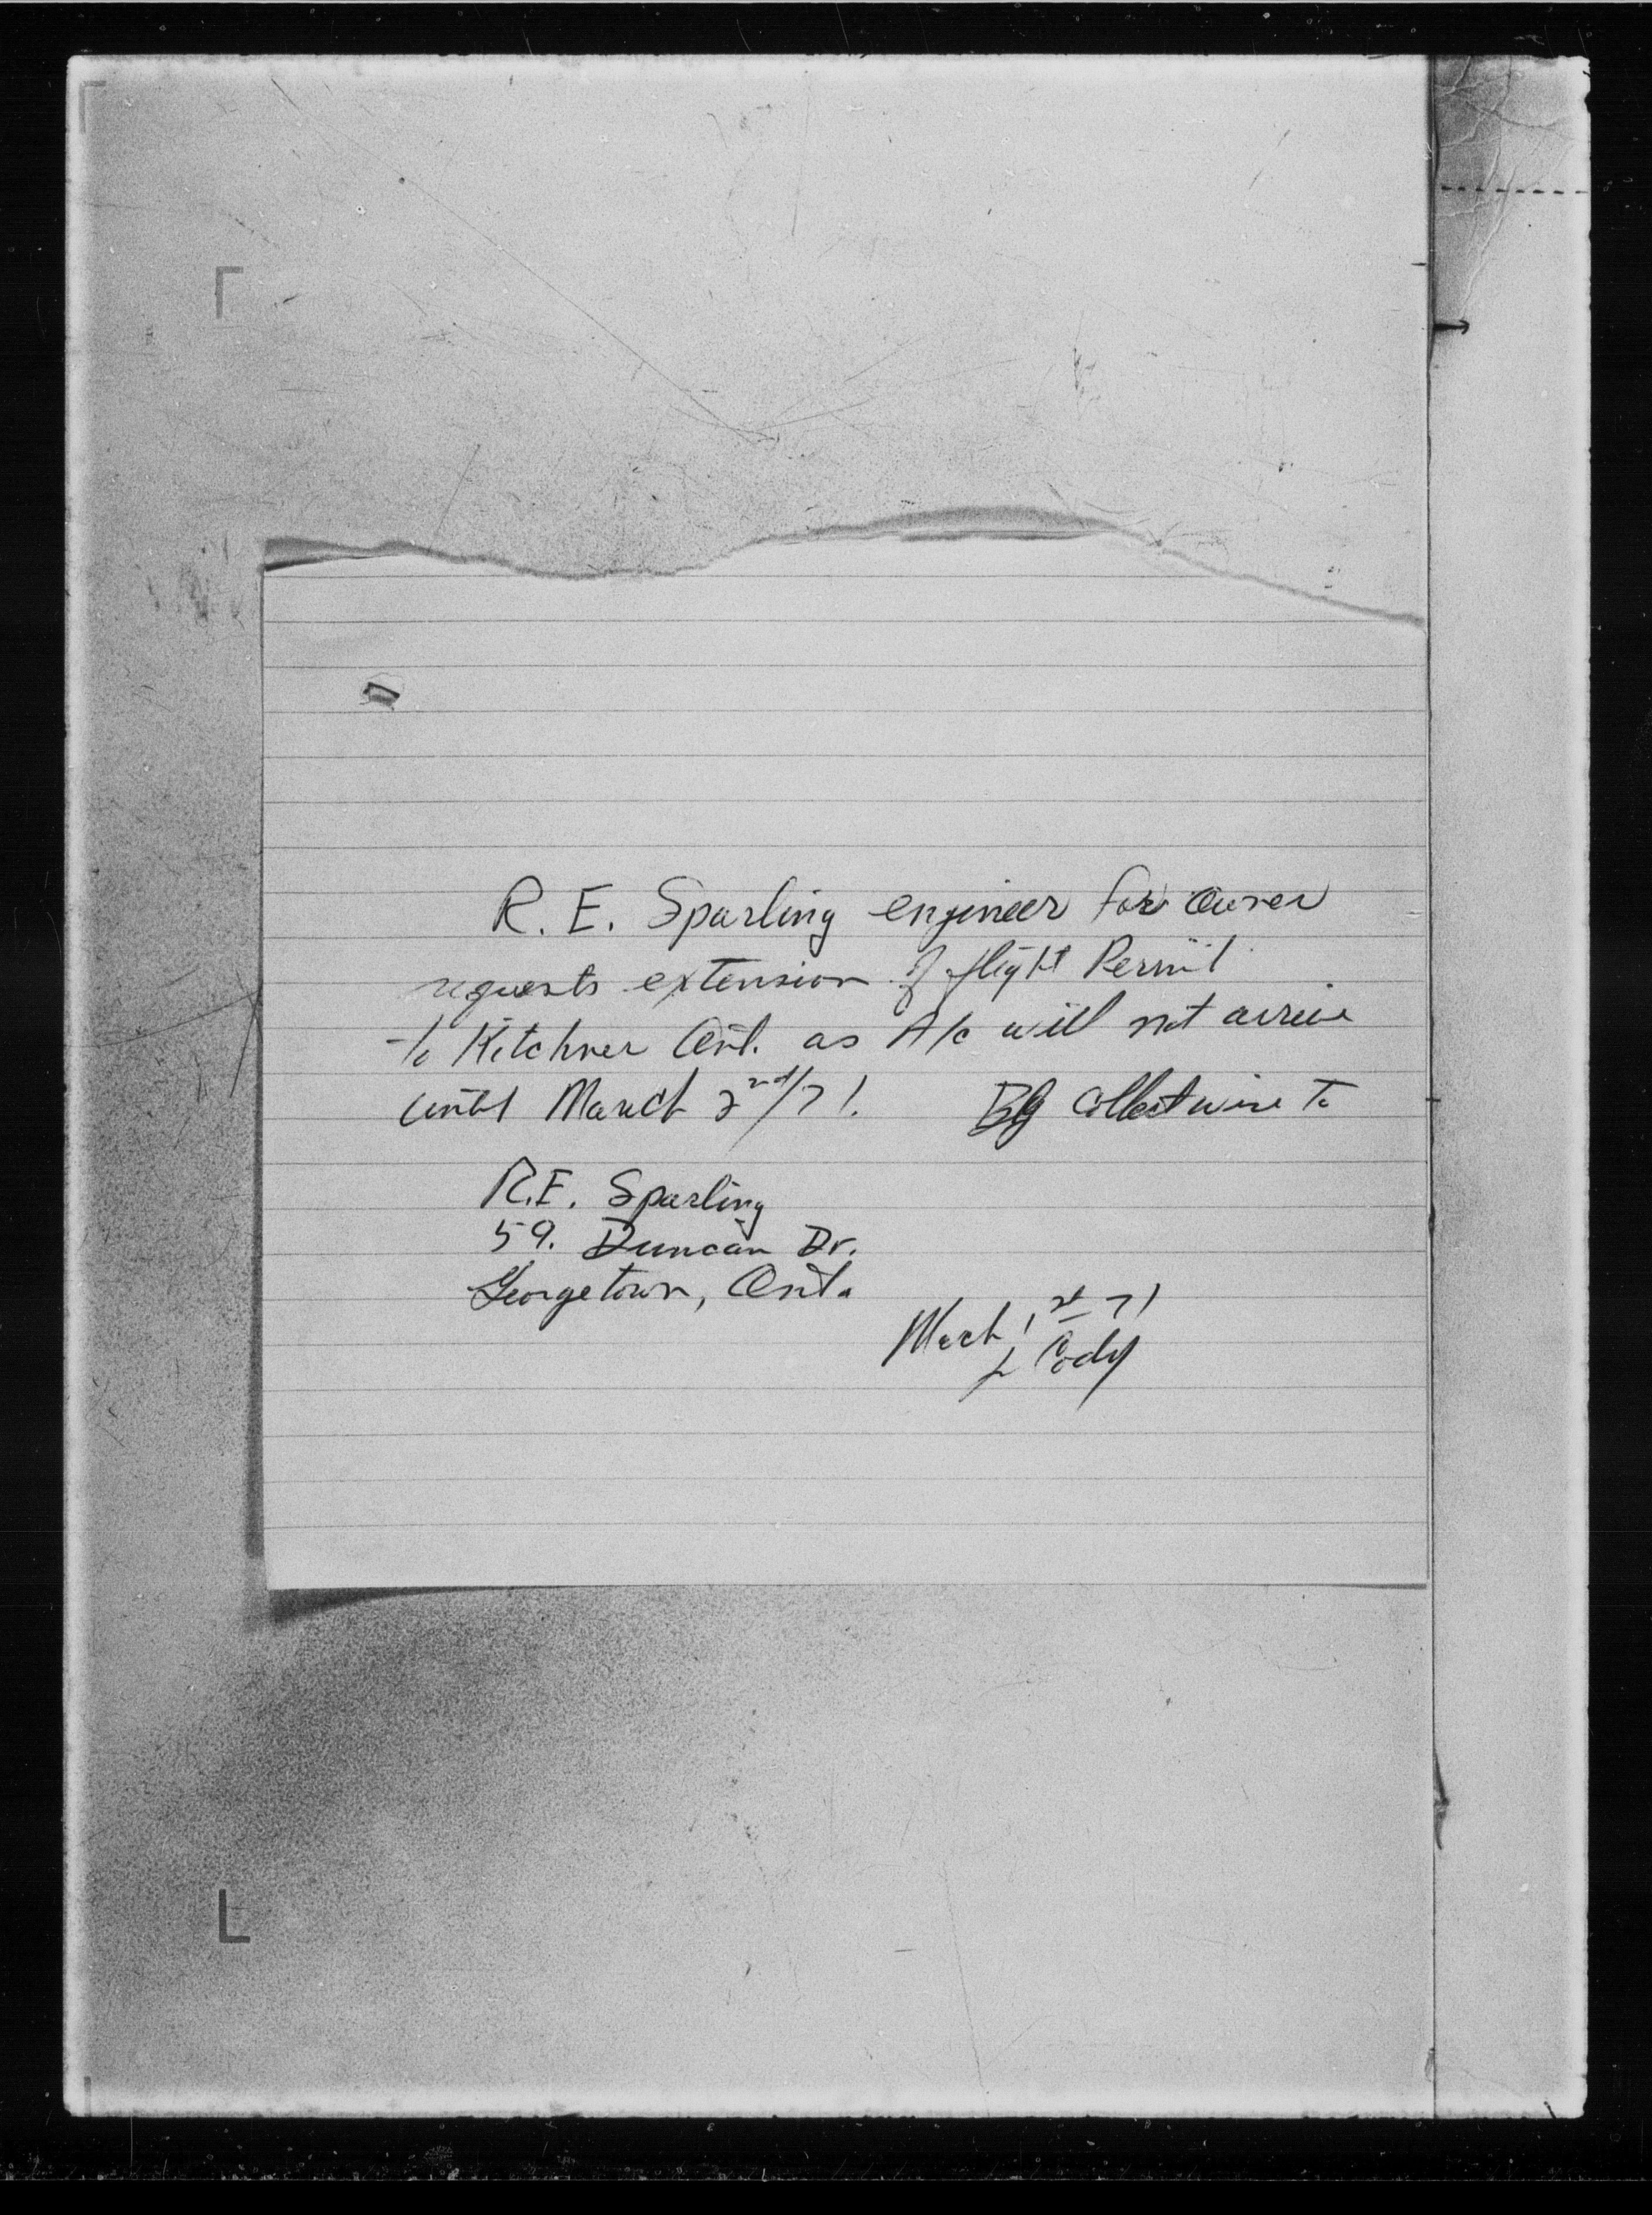 R. E. Sparling engineer for owner
requests extension of flight Permit
to Kitchner Ont. as A/c will not arrive
until March 2nd/71. By collect wire to
R.E. Sparling
59. Duncan Dr.
Georgetown, Ont.
March 1st 71
Cody